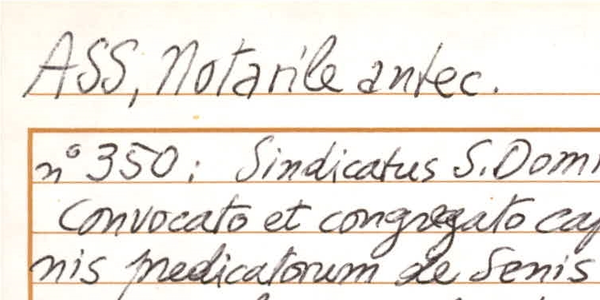 ASS, Notarile antec.
n° 350: Sindicatus S. Domi
Convocato et congregato cap
nis predicatorum de Senis